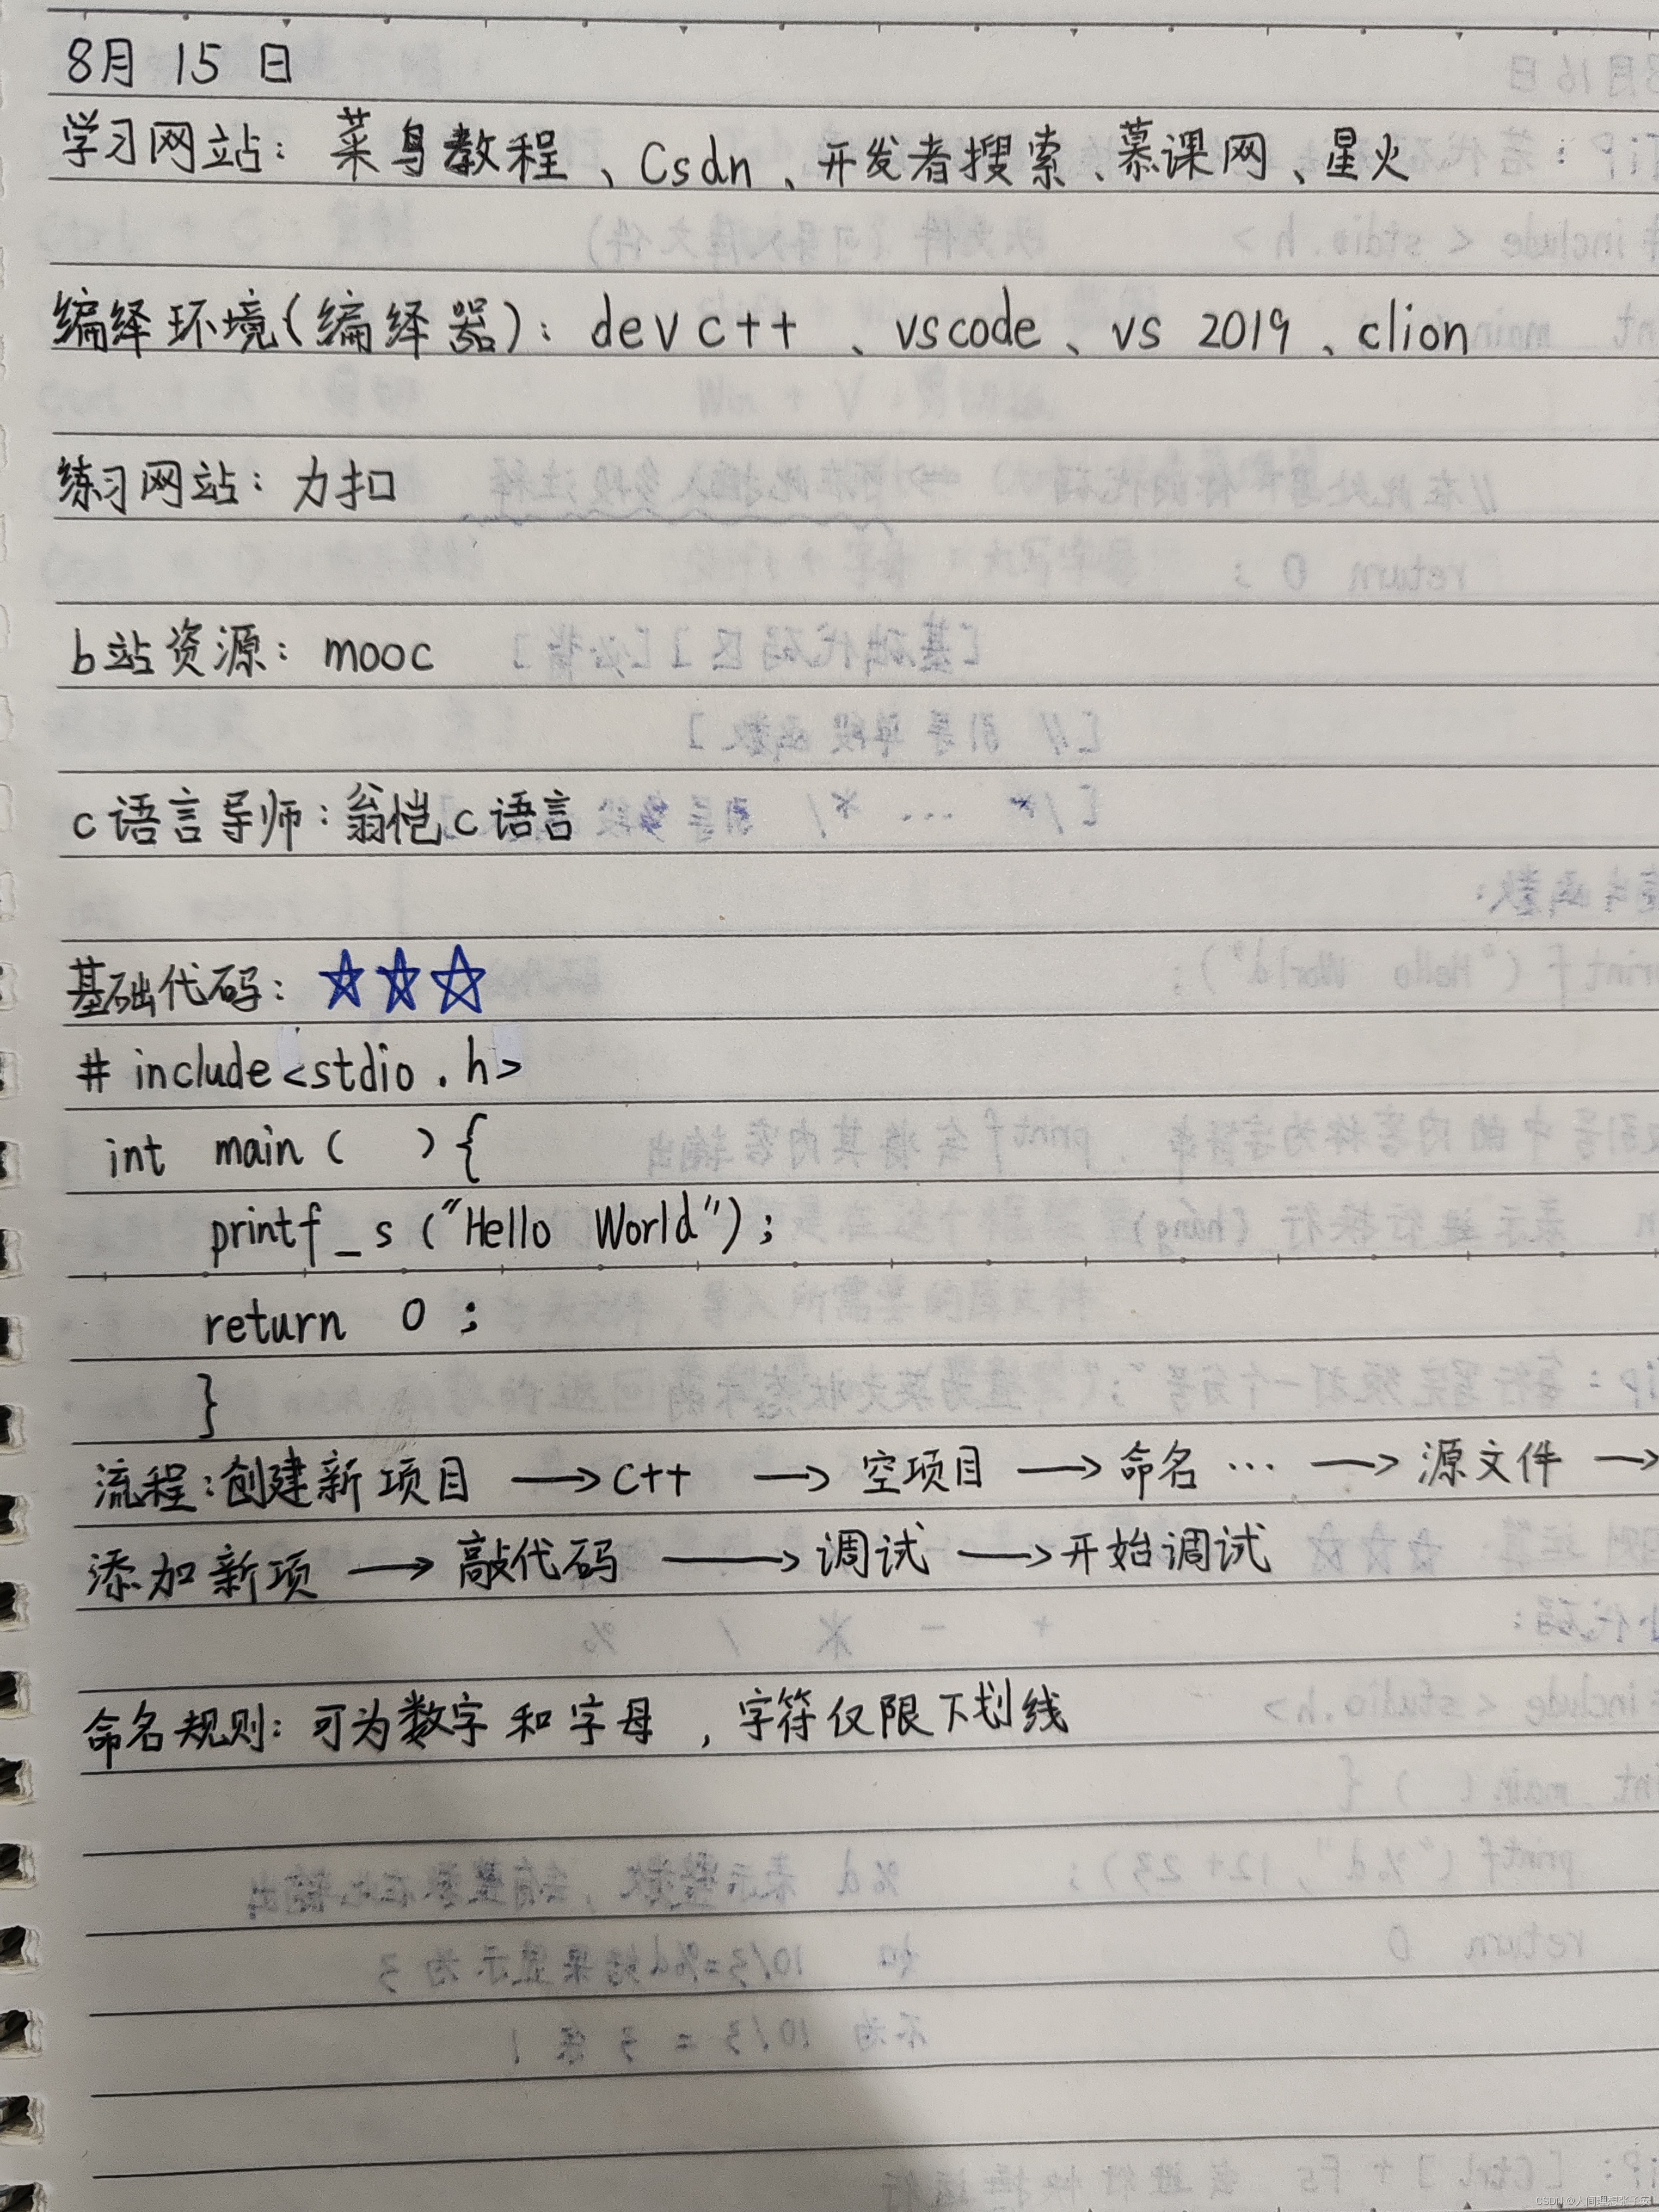 8月 15 日
学习网站：菜鸟教程、Csdn、开发者搜索、慕课网、星火
编绎环境(编绎器)：dev c++ 、vscode、vs 2019、clion
练习网站：力扣
b站资源：mooc
c语言导师：翁恺c语言
基础代码：☆☆☆
# include<stdio.h>
int main( ){
printf_s("Hello World");
return 0;
}
流程：创建新项目 → C++ → 空项目 → 命名… → 源文件 →
添加新项 → 敲代码 → 调试 → 开始调试
命名规则：可为数字和字母，字符仅限下划线